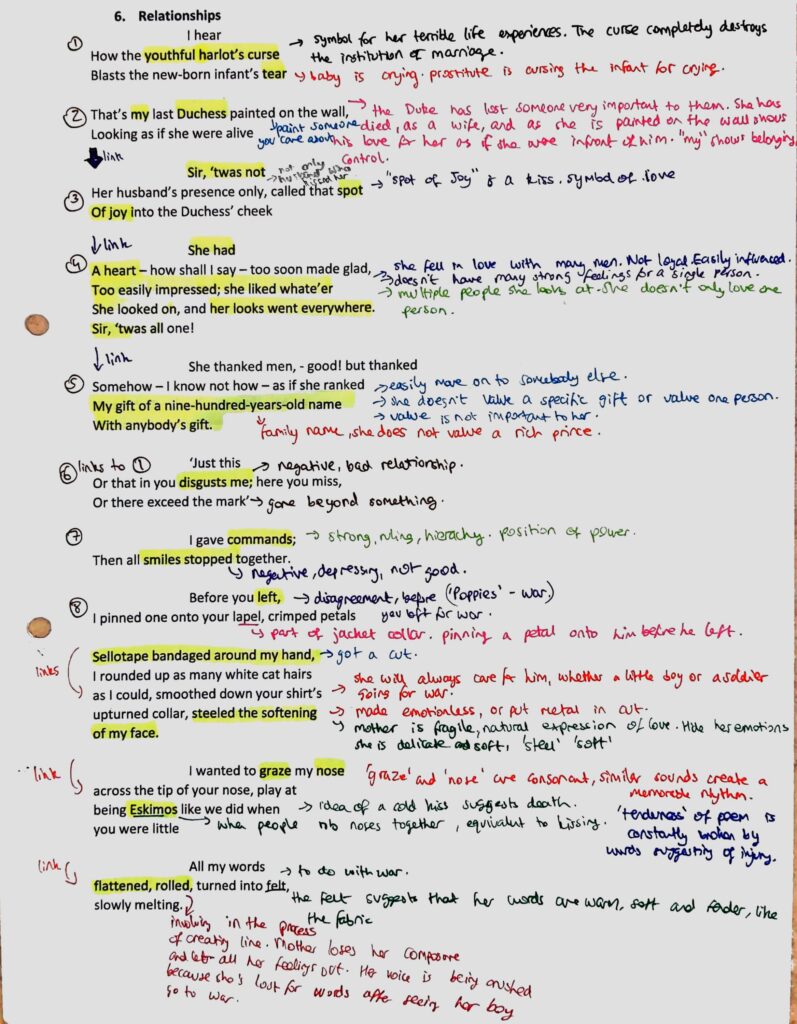 6. Relationships
① I hear
How the youthful harlot's curse → symbol for her terrible life experiences. The curse completely destroys the institution of marriage.
Blasts the new-born infant's tear ↳ baby is crying. prostitute is cursing the infant for crying.
② That's my last Duchess painted on the wall, → the Duke has lost someone very important to them. She has died, as a wife, and as she is painted on the wall shows his love for her as if she were infront of him. "my" shows belonging, control.
Looking as if she were alive paint someone you care about
link
Sir, 'twas not → not only husband who kissed her
③ Her husband's presence only, called that spot → "spot of Joy" is a kiss. symbol of love
Of joy into the Duchess' cheek
↓ link
She had
④ A heart – how shall I say – too soon made glad, → she fell in love with many men. Not loyal. Easily influenced.
Too easily impressed; she liked whate'er → doesn't have many strong feelings for a single person.
She looked on, and her looks went everywhere. → multiple people she looks at. She doesn't only love one person.
Sir, 'twas all one!
↓ link
She thanked men, - good! but thanked
⑤ Somehow – I know not how – as if she ranked → easily move on to somebody else.
My gift of a nine-hundred-years-old name → she doesn't value a specific gift or value one person.
→ value is not important to her.
With anybody's gift. family name, she does not value a rich prince.
⑥ links to ① 'Just this → negative, bad relationship.
Or that in you disgusts me; here you miss,
Or there exceed the mark' → gone beyond something.
⑦ I gave commands; → strong, ruling, hierachy. position of power.
Then all smiles stopped together.
↳ negative, depressing, not good.
Before you left, → disagreement, before ('Poppies' - war)
⑧ I pinned one onto your lapel, crimped petals you left for war.
↳ part of jacket collar. pinning a petal onto him before he left.
Sellotape bandaged around my hand, → got a cut.
links I rounded up as many white cat hairs → she will always care for him, whether a little boy or a soldier going for war.
as I could, smoothed down your shirt's
upturned collar, steeled the softening → made emotionless, or put metal in cut.
of my face. → mother is fragile, natural expression of love. Hide her emotions
she is delicate and soft, 'steel' 'soft'
link I wanted to graze my nose 'graze' and 'nose' are consonant, similar sounds create a memorable rhythm.
across the tip of your nose, play at
being Eskimos like we did when → idea of a cold kiss suggests death.
you were little → when people rub noses together, equivalent to kissing.
'tenderness' of poem is constantly broken by words suggesting of injury.
link All my words → to do with war.
flattened, rolled, turned into felt,
slowly melting. the felt suggests that her words are warm, soft and tender, like the fabric
involving in the process
of creating line. Mother loses her composure
and lets all her feelings out. Her voice is being crushed
because she's lost for words after seeing her boy
go to war.